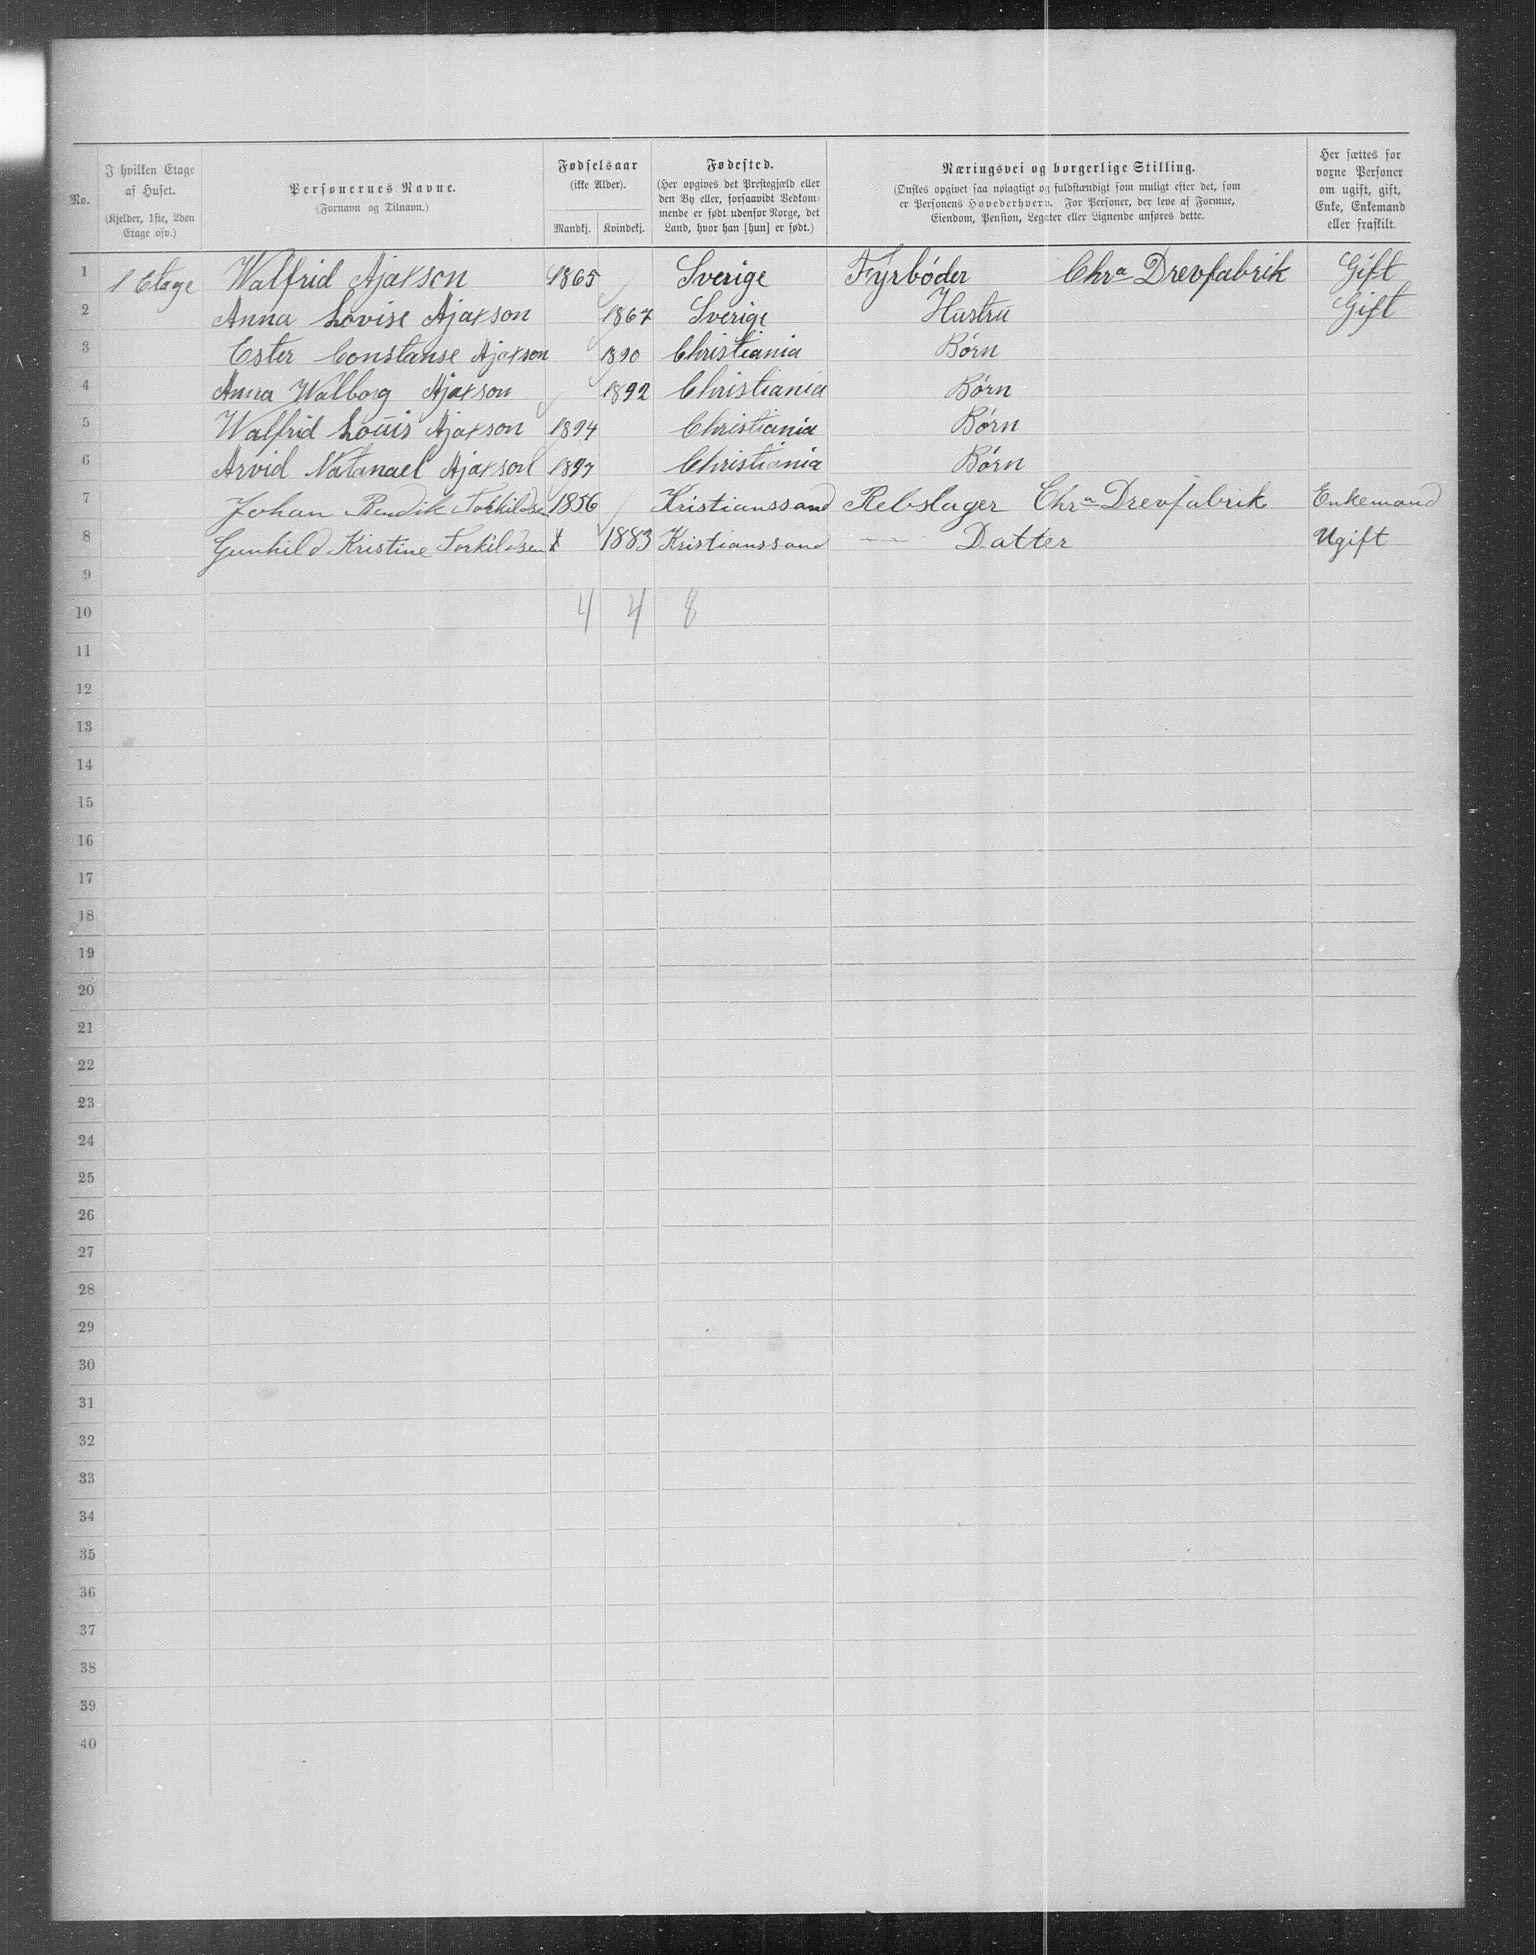 No. | I hvilken Etage af Huset. (Kjelder, 1ste, 2den Etage osv.) | Personernes Navne. (Fornavn og Tilnavn.) | Fødselsaar (ikke Alder). Mandkj. | Kvindekj. | Fødested. (Her opgives det Prestegjæld eller den By eller, forsaavidt Vedkommende er født udenfor Norge, det Land, hvor han [hun] er født.) | Næringsvei og borgerlige Stilling. (Ønskes opgivet saa nøiagtigt og fuldstændigt som muligt efter det, som er Personens Hovederhverv. For Personer, der leve af Formue, Eiendom, Pension, Legater eller Lignende anføres dette. | Her sættes for voxne Personer om ugift, gift, Enke, Enkemand eller fraskilt.
1 | 1 Etage | Walfrid Ajaxson | 1865 | | Sverige | Fyrbøder Chra Drevfabrik | Gift
2 | | Anna Lovise Ajaxson | | 1867 | Sverige | Hustru | Gift
3 | | Ester Constanse Ajaxson | | 1890 | Christiania | Børn
4 | | Anna Walborg Ajaxson | | 1892 | Christiania | Børn
5 | | Walfrid Louis Ajaxson | 1894 | | Christiania | Børn
6 | | Arvid Natanael Ajaxson | 1897 | | Christiania | Børn
7 | | Johan Bendik Torkildsen | 1856 | | Kristianssand | Rebslager Chra Drevfabrik | Enkemand
8 | | Gunhild Kristine Torkildsen | | 1883 | Kristianssand | -- Datter | Ugift
9
10 | | | 4 | 4 | 8
11
12
13
14
15
16
17
18
19
20
21
22
23
24
25
26
27
28
29
30
31
32
33
34
35
36
37
38
39
40